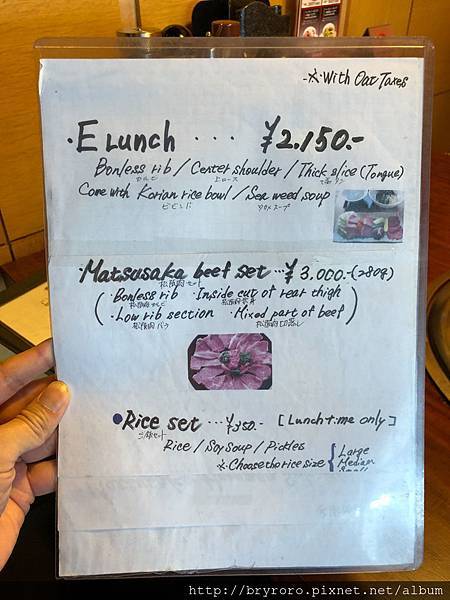 ※With Out Taxes
・E Lunch ・・・ ¥2.150.-
Bonless rib / Center shoulder / Thick slice (Tongue)
カルビ 上ロース
Come with Korian rice bowl / Sea weed soup
ビビンバ ワカメスープ
・Matsusaka beef set ・・・¥3.000.-(280g)
松阪肉セット
・Bonless rib ・Inside cut of rear thigh
松阪肉カルビ
・Low rib section ・Mixed part of beef
松阪肉バラ 松阪肉切落し
●Rice set ・・・¥350.- [Lunch time only]
ご飯セット
Rice / Soy Soup / Pickles
※Choose the rice size { Large
Medium
Small
http://bryroro.pixnet.net/album